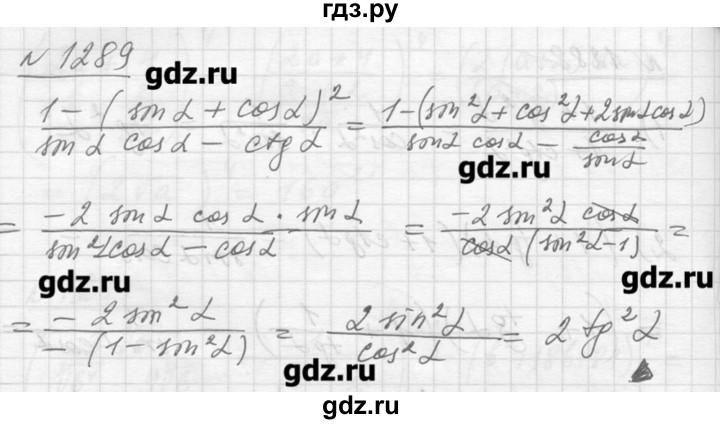 гдз.ру
N 1289
gdz.ru
1-(sin α + cos α)² / sin α cos α - ctg α = 1-(sin²α + cos²α + 2 sin α cos α) / sin α cos α - cos α / sin α
gdz.ru
= -2 sin α cos α · sin α / sin²α cos α - cos α = -2 sin²α cos α / cos α (sin²α - 1) =
gdz.ru
gdz.ru
= -2 sin²α / -(1 - sin²α) = 2 sin²α / cos²α = 2 tg²α
gdz.ru
gdz.ru